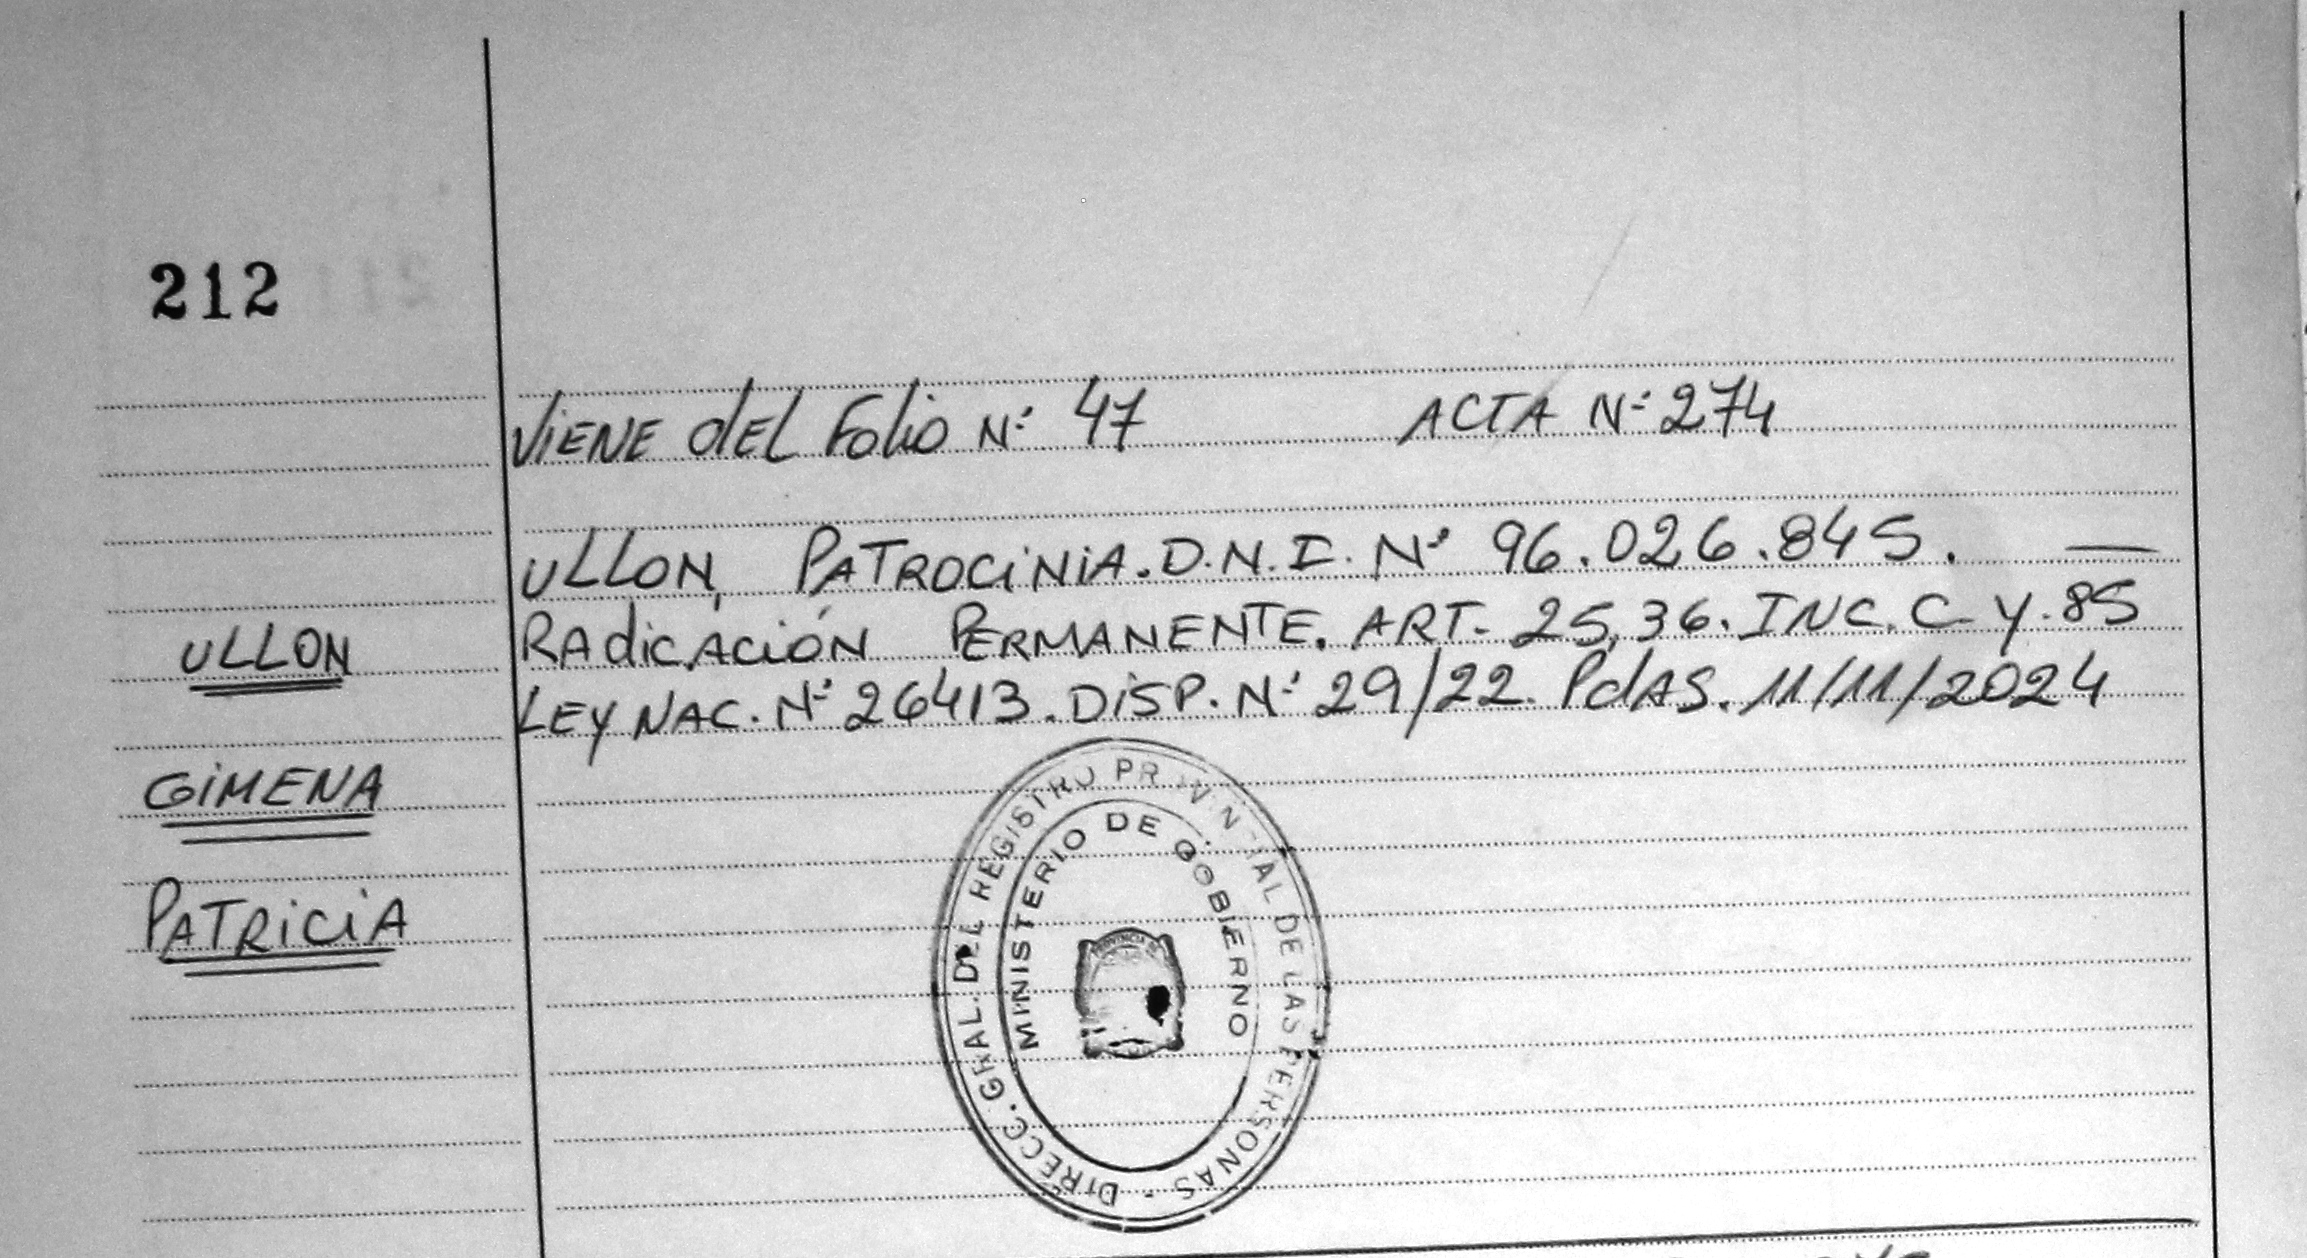 212
VIENE dEL Folio N° 47 ACTA N° 274
ULLON, PATROCINIA. D.N.I. N° 96.026.845. —
RAdicACIÓN PERMANENTE. ART. 25, 36. INC. C Y. 85
LEY NAC. N° 26413. DISP. N° 29/22. PdAS. 11/11/2024
ULLON
GIMENA
PATRICIA
DIRECC. GRAL. DEL REGISTRO PROVINCIAL DE LAS PERSONAS -
MINISTERIO DE GOBIERNO
PROVINCIA DE